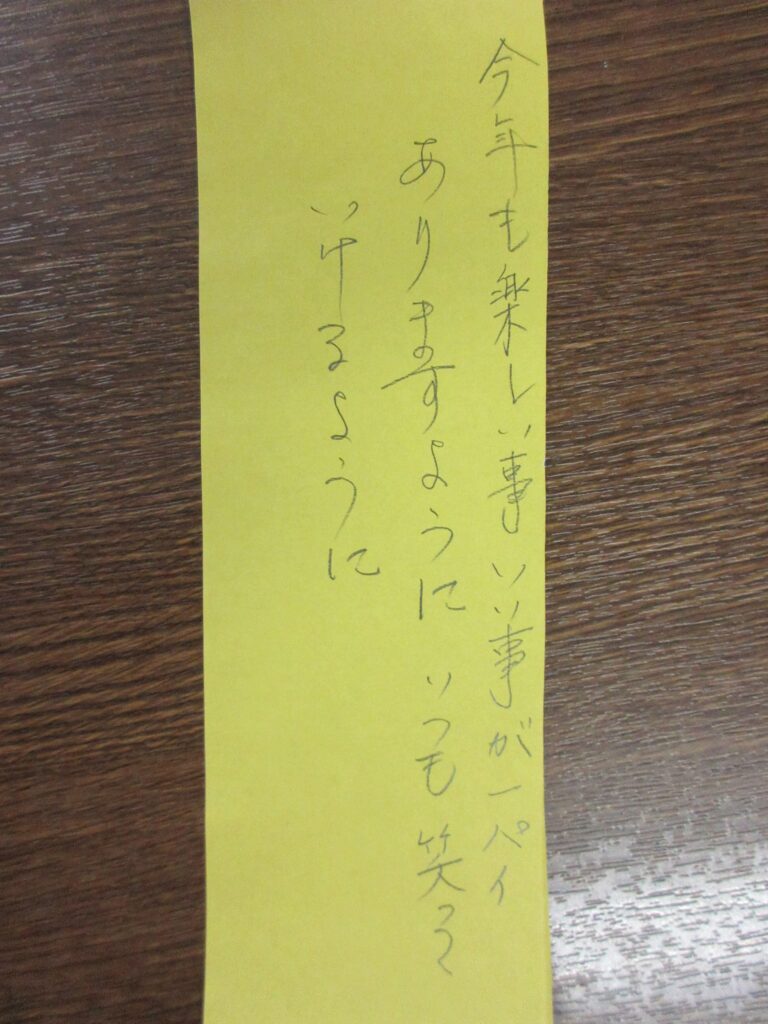 今年も楽しい事いい事が一パイ
ありますように いつも笑って
いけるように